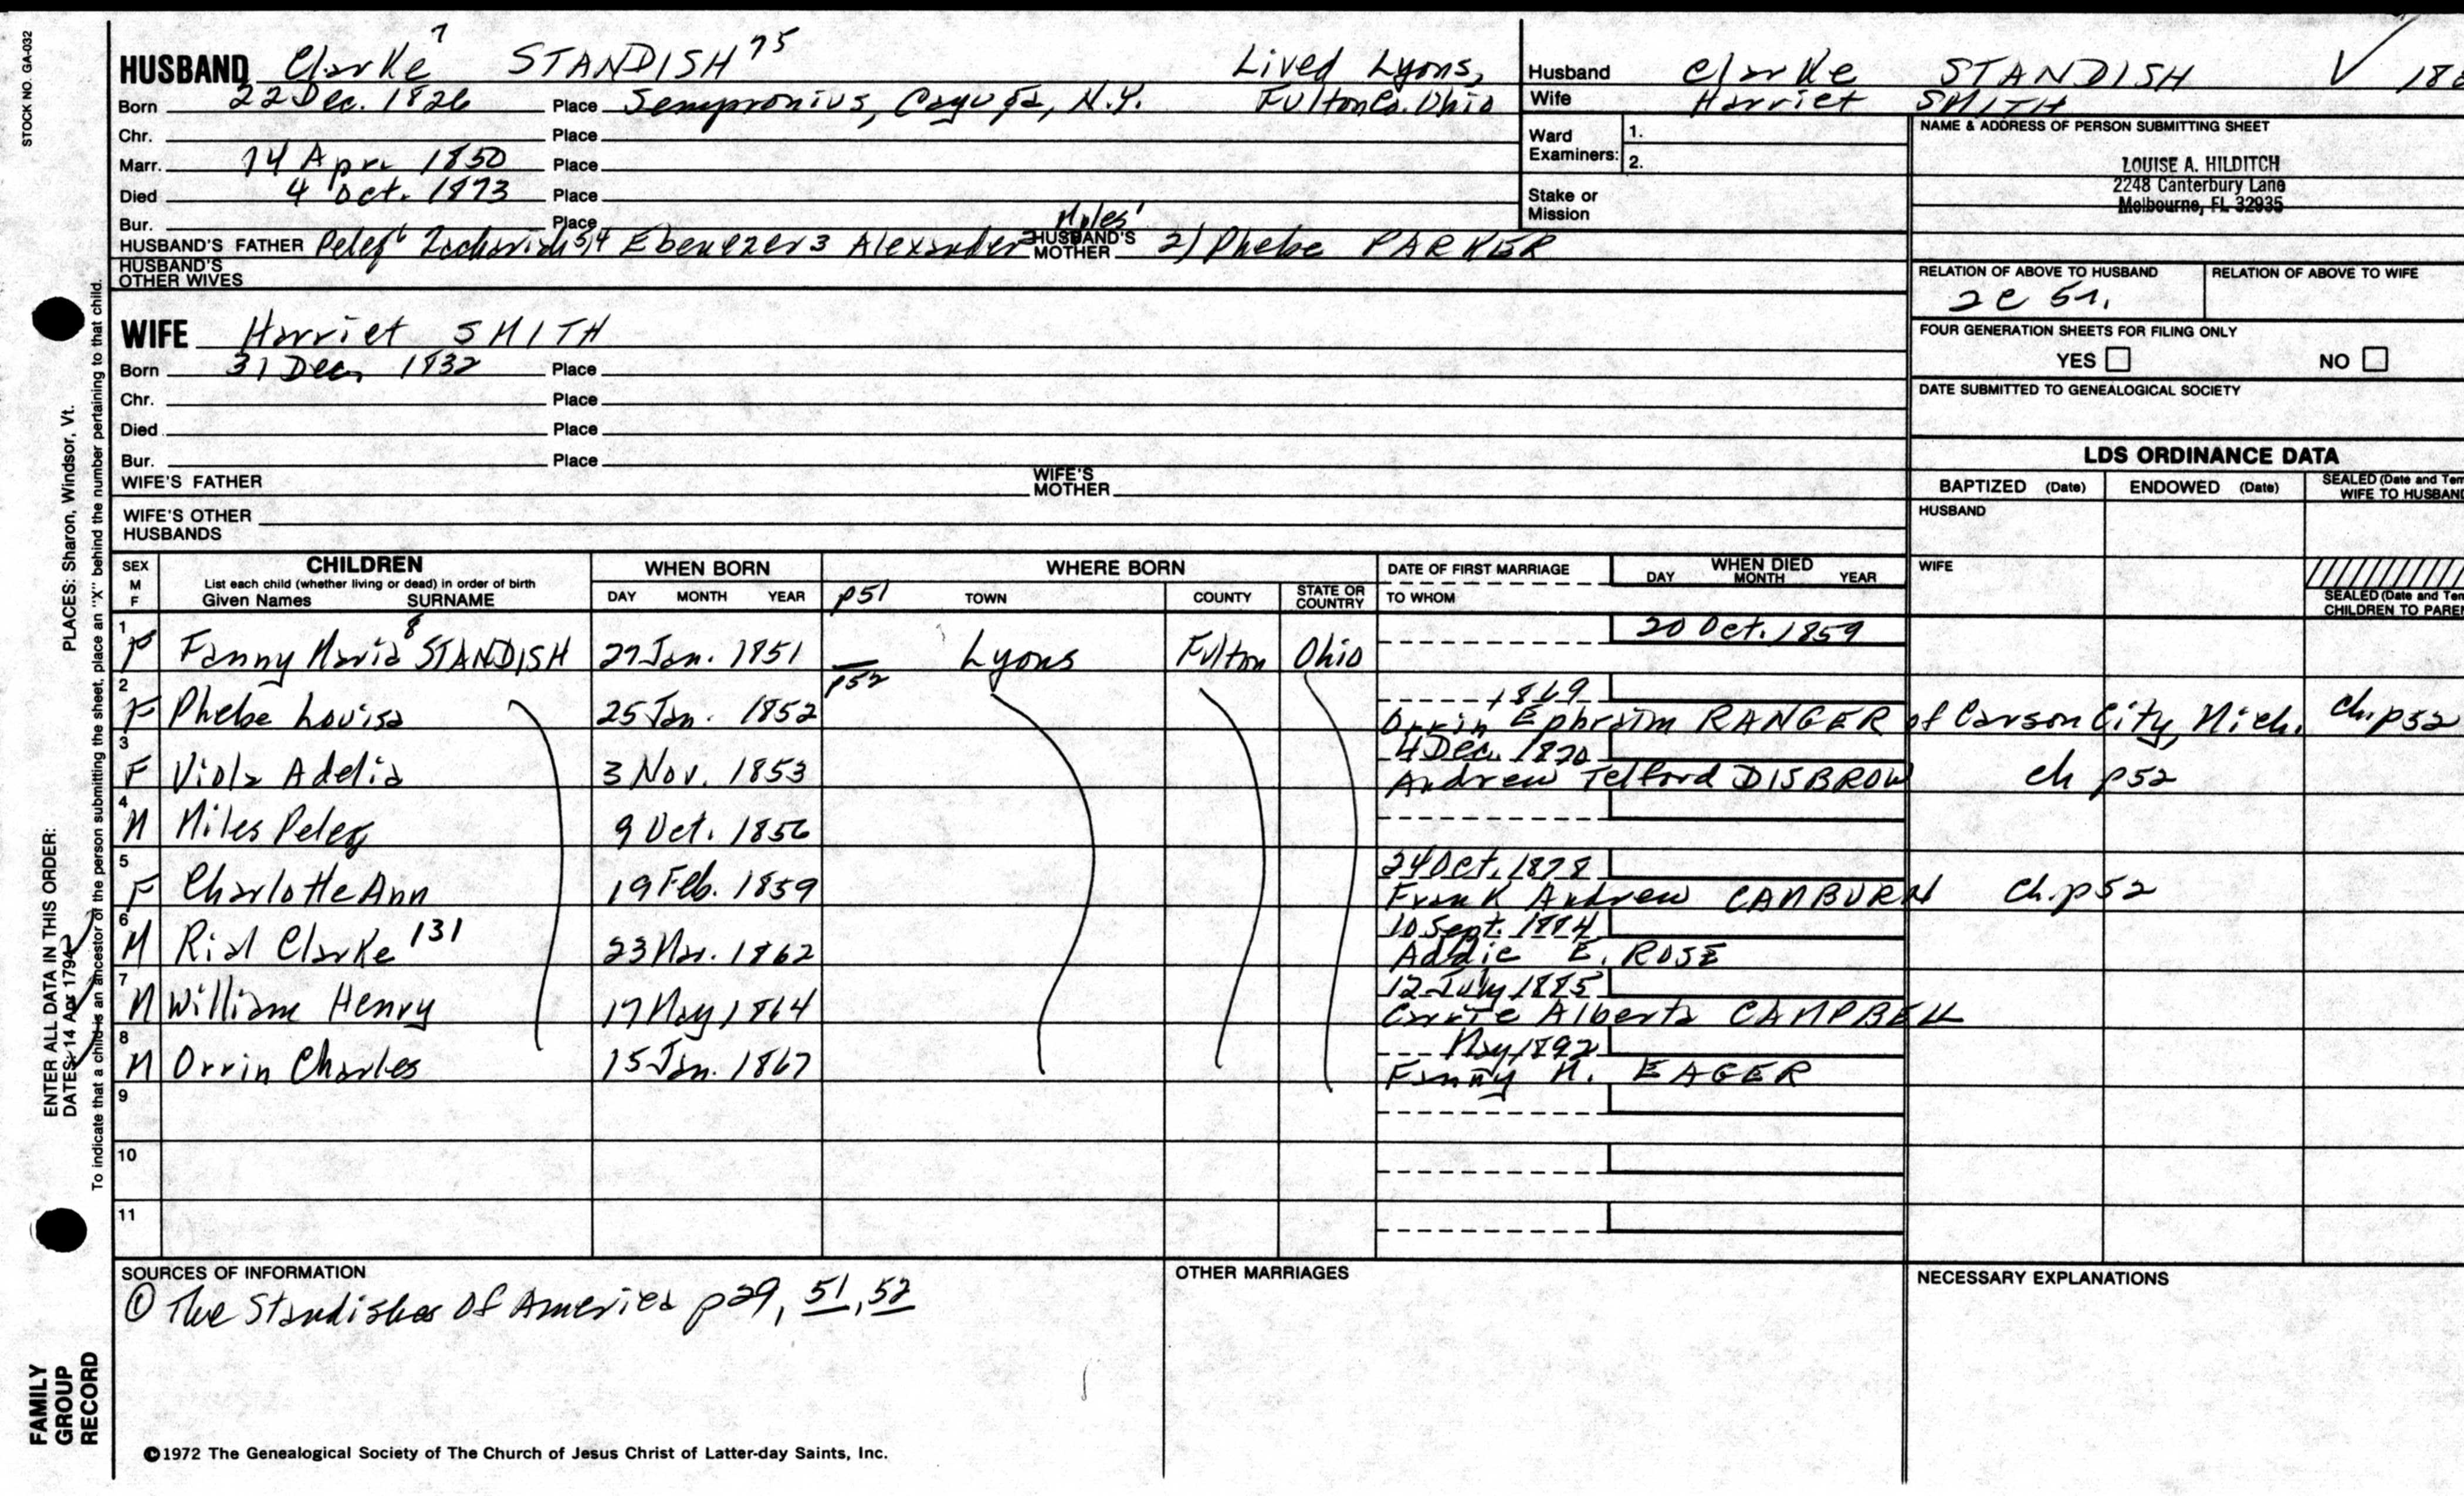 STOCK NO. GA-032
HUSBAND Clarke 7 STANDISH 75 Lived Lyons,
Born 22 Dec. 1826 Place Sempronius, Cayuga, N.Y. Fulton Co. Ohio
Chr. Place
Marr. 14 Apr. 1850 Place
Died 4 Oct. 1873 Place
Bur. Place
HUSBAND'S FATHER Peleg 6 Zachariah 5,4 Ebenezer 3 Alexander 2 Myles' HUSBAND'S MOTHER 2) Phebe PARKER
HUSBAND'S OTHER WIVES
WIFE Harriet SMITH
Born 31 Dec. 1832 Place
Chr. Place
Died Place
Bur. Place
WIFE'S FATHER WIFE'S MOTHER
WIFE'S OTHER HUSBANDS
Husband Clarke STANDISH V 188
Wife Harriet SMITH
Ward Examiners: 1.
2.
Stake or Mission
NAME & ADDRESS OF PERSON SUBMITTING SHEET
LOUISE A. HILDITCH
2248 Canterbury Lane
Melbourne, FL 32935
RELATION OF ABOVE TO HUSBAND RELATION OF ABOVE TO WIFE
2c 5r.
FOUR GENERATION SHEETS FOR FILING ONLY
YES NO
DATE SUBMITTED TO GENEALOGICAL SOCIETY
LDS ORDINANCE DATA
BAPTIZED (Date) ENDOWED (Date) SEALED (Date and Tem
WIFE TO HUSBAND
HUSBAND
WIFE
SEALED (Date and Tem
CHILDREN TO PAREN
SEX M F CHILDREN WHEN BORN WHERE BORN DATE OF FIRST MARRIAGE WHEN DIED
List each child (whether living or dead) in order of birth DAY MONTH YEAR
Given Names SURNAME DAY MONTH YEAR p51 TOWN COUNTY STATE OR COUNTRY TO WHOM
1 20 Oct. 1859
F Fanny Maria 8 STANDISH 27 Jan. 1851 Lyons Fulton Ohio
2 p52 1869
F Phebe Louisa 25 Jan. 1852 Orrin Ephraim RANGER of Carson City, Mich. ch. p52
3 4 Dec. 1870
F Viola Adelia 3 Nov. 1853 Andrew Telford DISBROW ch p52
4
M Miles Peleg 9 Oct. 1856
5 24 Oct. 1878
F Charlotte Ann 19 Feb. 1859 Frank Andrew CAMBURN ch. p52
6 10 Sept. 1884
M Rial Clarke 131 23 Mar. 1862 Addie E. ROSE
7 12 July 1885
M William Henry 17 May 1864 Carrie Alberta CAMPBELL
8 May 1892
M Orrin Charles 15 Jan. 1867 Fanny M. EAGER
9
10
11
SOURCES OF INFORMATION OTHER MARRIAGES NECESSARY EXPLANATIONS
① The Standishes Of America p29, 51, 52
©1972 The Genealogical Society of The Church of Jesus Christ of Latter-day Saints, Inc.
FAMILY
GROUP
RECORD
ENTER ALL DATA IN THIS ORDER:
DATES: 14 Apr 1794
PLACES: Sharon, Windsor, Vt.
To indicate that a child is an ancestor of the person submitting the sheet, place an "X" behind the number pertaining to that child.